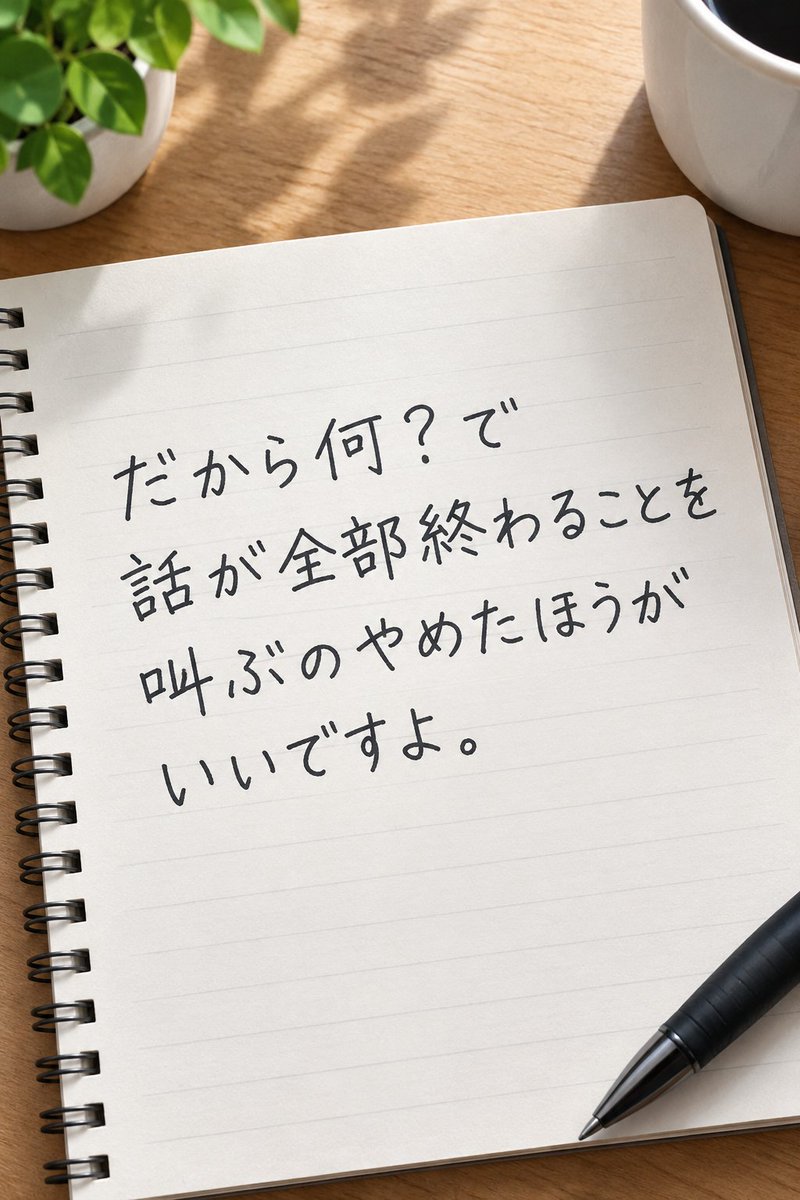 だから何？で
話が全部終わることを
叫ぶのやめたほうが
いいですよ。